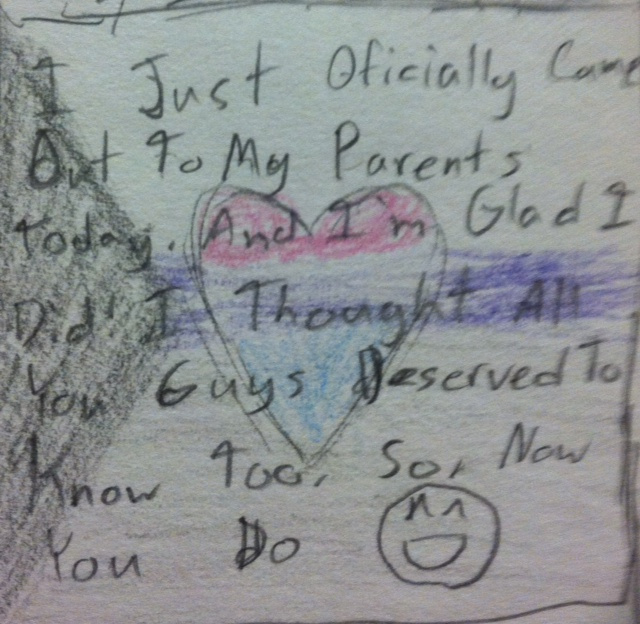 I Just Oficially Came
Out To My Parents
Today. And I'm Glad I
Did! I Thought All
You Guys Deserved To
Know Too, So, Now
You Do